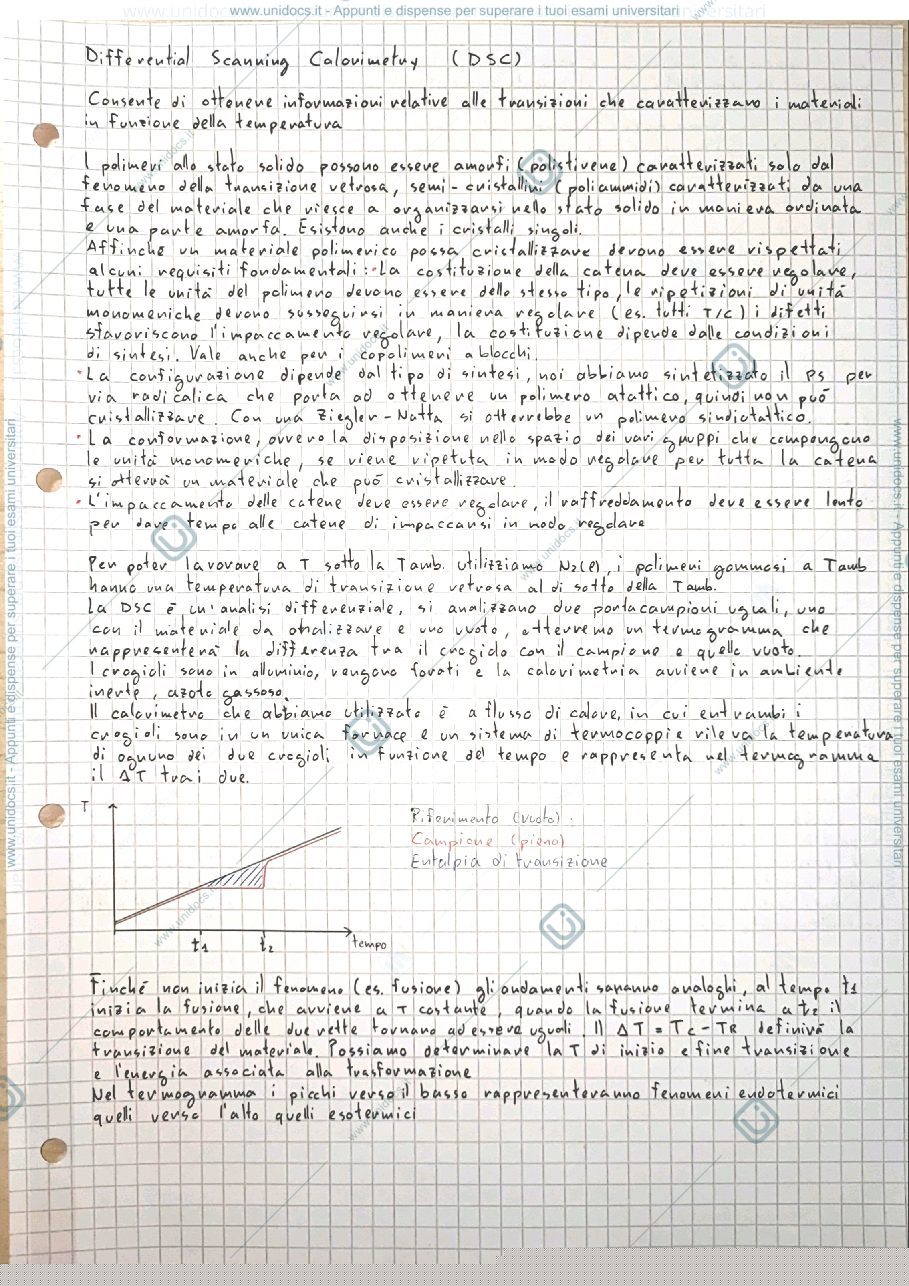 www.unidocs.it - Appunti e dispense per superare i tuoi esami universitari
Differential Scanning Calorimetry (DSC)
Consente di ottenere informazioni relative alle transizioni che caratterizzano i materiali
in funzione della temperatura
I polimeri allo stato solido possono essere amorfi (polistirene) caratterizzati solo dal
fenomeno della transizione vetrosa, semi-cristallini (poliammidi) caratterizzati da una
fase del materiale che riesce a organizzarsi nello stato solido in maniera ordinata
e una parte amorfa. Esistono anche i cristalli singoli.
Affinché un materiale polimerico possa cristallizzare devono essere rispettati
alcuni requisiti fondamentali: • La costituzione della catena deve essere regolare,
tutte le unità del polimero devono essere dello stesso tipo, le ripetizioni di unità
monomeriche devono susseguirsi in maniera regolare (es. tutti T/C) i difetti
sfavoriscono l'impaccamento regolare, la costituzione dipende dalle condizioni
di sintesi. Vale anche per i copolimeri a blocchi.
• La configurazione dipende dal tipo di sintesi, noi abbiamo sintetizzato il PS per
via radicalica che porta ad ottenere un polimero atattico, quindi non può
cristallizzare. Con una Ziegler-Natta si otterrebbe un polimero sindiotattico.
• La conformazione, ovvero la disposizione nello spazio dei vari gruppi che compongono
le unità monomeriche, se viene ripetuta in modo regolare per tutta la catena
si otterrà un materiale che può cristallizzare.
• L'impaccamento delle catene deve essere regolare, il raffreddamento deve essere lento
per dare tempo alle catene di impaccarsi in modo regolare
Per poter lavorare a T sotto la Tamb. utilizziamo N2(l), i polimeri gommosi a Tamb
hanno una temperatura di transizione vetrosa al di sotto della Tamb.
La DSC è un'analisi differenziale, si analizzano due portacampioni uguali, uno
con il materiale da analizzare e uno vuoto, otterremo un termogramma che
rappresenterà la differenza tra il crogiolo con il campione e quello vuoto.
I crogioli sono in alluminio, vengono forati e la calorimetria avviene in ambiente
inerte, azoto gassoso.
Il calorimetro che abbiamo utilizzato è a flusso di calore, in cui entrambi i
crogioli sono in un unica fornace e un sistema di termocoppie rileva la temperatura
di ognuno dei due crogioli in funzione del tempo e rappresenta nel termogramma
il ΔT tra i due.
T
Riferimento (vuoto)
Campione (pieno)
Entalpia di transizione
t1
t2
tempo
Finché non inizia il fenomeno (es. fusione) gli andamenti saranno analoghi, al tempo t1
inizia la fusione, che avviene a T costante, quando la fusione termina a t2 il
comportamento delle due rette tornano ad essere uguali. Il ΔT = Tc - TR definirà la
transizione del materiale. Possiamo determinare la T di inizio e fine transizione
e l'energia associata alla trasformazione
Nel termogramma i picchi verso il basso rappresenteranno fenomeni endotermici
quelli verso l'alto quelli esotermici
www.unidocs.it - Appunti e dispense per superare i tuoi esami universitari
www.unidocs.it - Appunti e dispense per superare i tuoi esami universitari